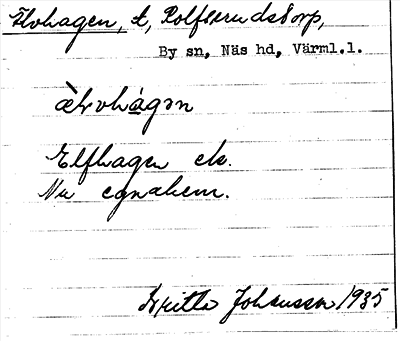 Älvhagen, t, Rolfserudstorp,
By sn, Näs hd, Värml.l.
Elfhagen ek.
Nu egnahem.
Britta Johansson 1935